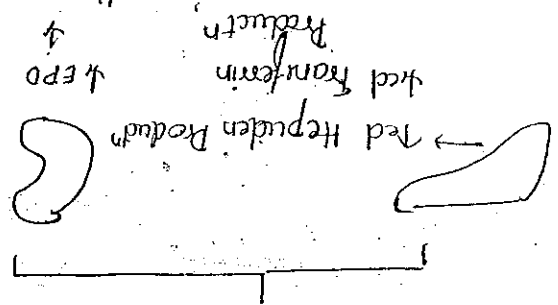 → ↑ed Hepciden Productⁿ
↓ed Transferrin Productⁿ
↓ EPO
↓